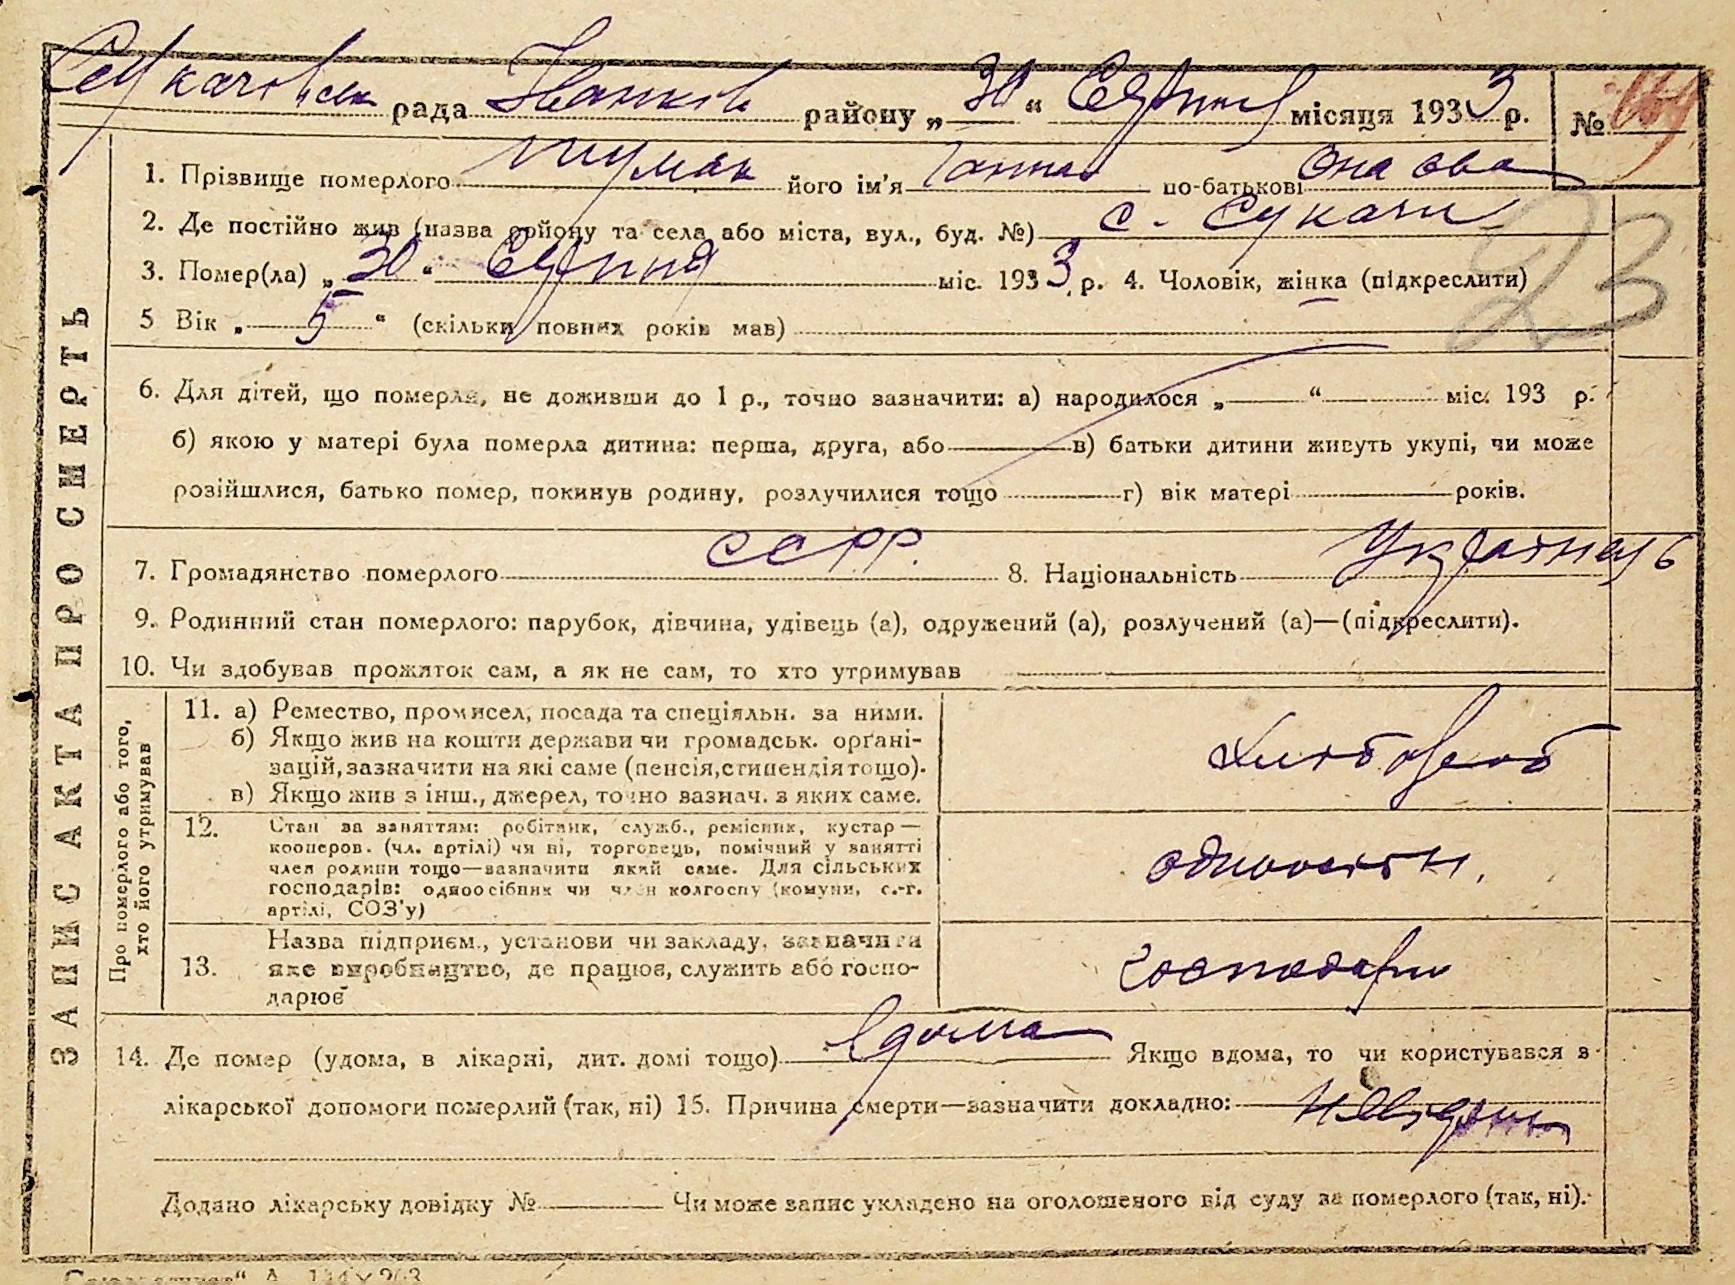 Сукачовськ рада Іванків району „30“ Серпня місяця 1933 р. №
1. Прізвище померлого Шумак його ім'я Ганна по-батькові
2. Де постійно жив (назва району та села або міста, вул., буд. №) с. Сукачи
3. Помер(ла) „30“ Серпня міс. 1933 р. 4. Чоловік, жінка (підкреслити)
23
5 Вік „5“ (скільки повних років мав)
6. Для дітей, що померли, не доживши до 1 р., точно зазначити: а) народилося „ “ міс. 193 р.
б) якою у матері була померла дитина: перша, друга, або в) батьки дитини живуть укупі, чи може
розійшлися, батько помер, покинув родину, розлучилися тощо г) вік матері років.
7. Громадянство померлого ССРР. 8. Національність
9. Родинний стан померлого: парубок, дівчина, удівець (а), одружений (а), розлучений (а)—(підкреслити).
10. Чи здобував прожиток сам, а як не сам, то хто утримував
ЗАПИС АКТА ПРО СМЕРТЬ
Про померлого або того,
хто його утримував
11. а) Ремество, промисел, посада та спеціяльн. за ними.
б) Якщо жив на кошти держави чи громадськ. організацій, зазначити на які саме (пенсія, стипендія тощо).
в) Якщо жив з інш., джерел, точно зазнач. з яких саме.
Хлібороб
12. Стан за заняттям: робітник, служб., ремісник, кустар—
кооперов. (чл. артілі) чи ні, торговець, помічний у занятті
член родини тощо—зазначити який саме. Для сільських
господарів: одноосібник чи член колгоспу (комуни, с.-г.
артілі, СОЗ'у)
13. Назва підприєм., установи чи закладу, зазначити
яке виробництво, де працює, служить або господарює
14. Де помер (удома, в лікарні, дит. домі тощо) вдома Якщо вдома, то чи користувався з
лікарської допомоги померлий (так, ні) 15. Причина смерти—зазначити докладно:
Додано лікарську довідку № Чи може запис укладено на оголошеного від суду за померлого (так, ні).